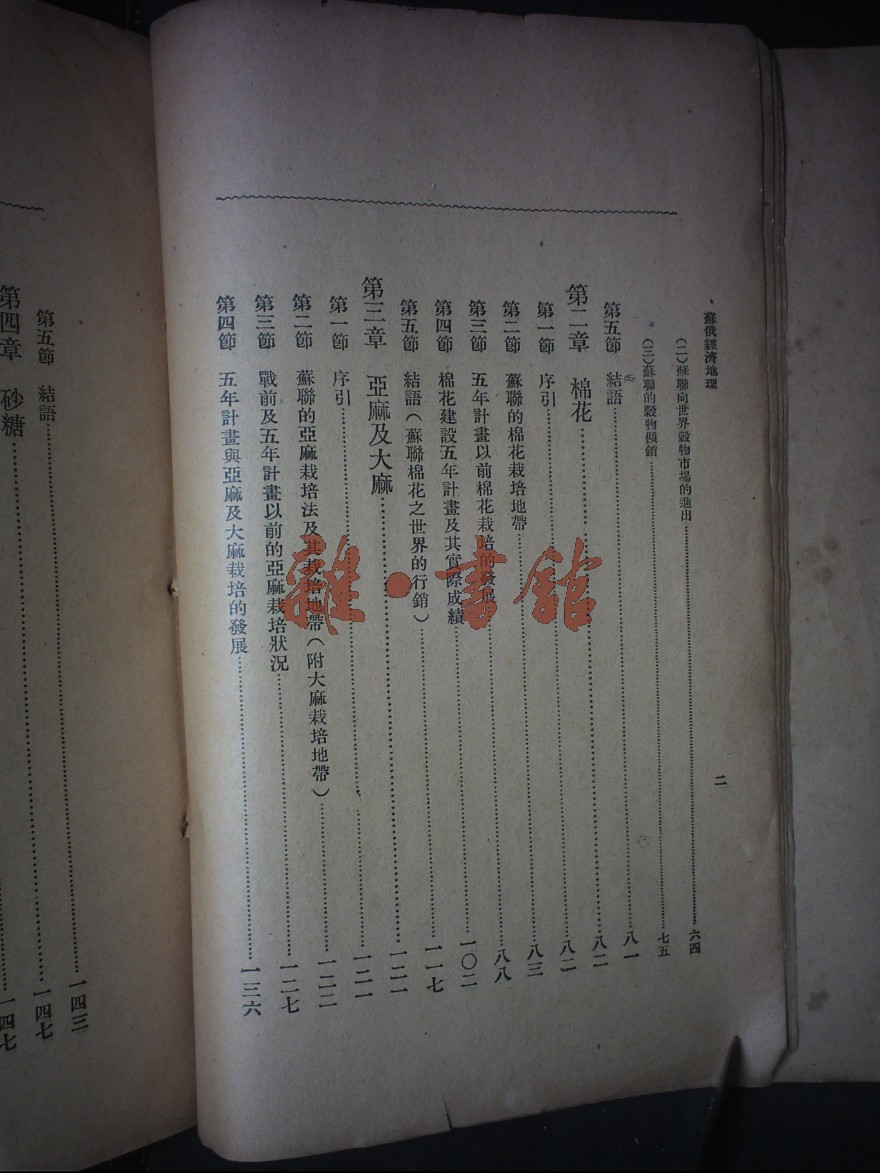 蘇俄經濟地理
二
(二)蘇聯向世界穀物市場的進出……六四
(三)蘇聯的穀物傾銷……七五
第五節 結語……八一
第二章 棉花……八二
第一節 序引……八二
第二節 蘇聯的棉花栽培地帶……八三
第三節 五年計畫以前棉花栽培的發展……八八
第四節 棉花建設五年計畫及其實際成績……一〇二
第五節 結語(蘇聯棉花之世界的行銷)……一一七
第三章 亞麻及大麻……一二一
第一節 序引……一二一
第二節 蘇聯的亞麻栽培法及其栽培地帶(附大麻栽培地帶)……一二二
第三節 戰前及五年計畫以前的亞麻栽培狀況……一二七
第四節 五年計畫與亞麻及大麻栽培的發展……一三六
第五節 結語……一四三
第四章 砂糖……一四七
一四七
雜·書館